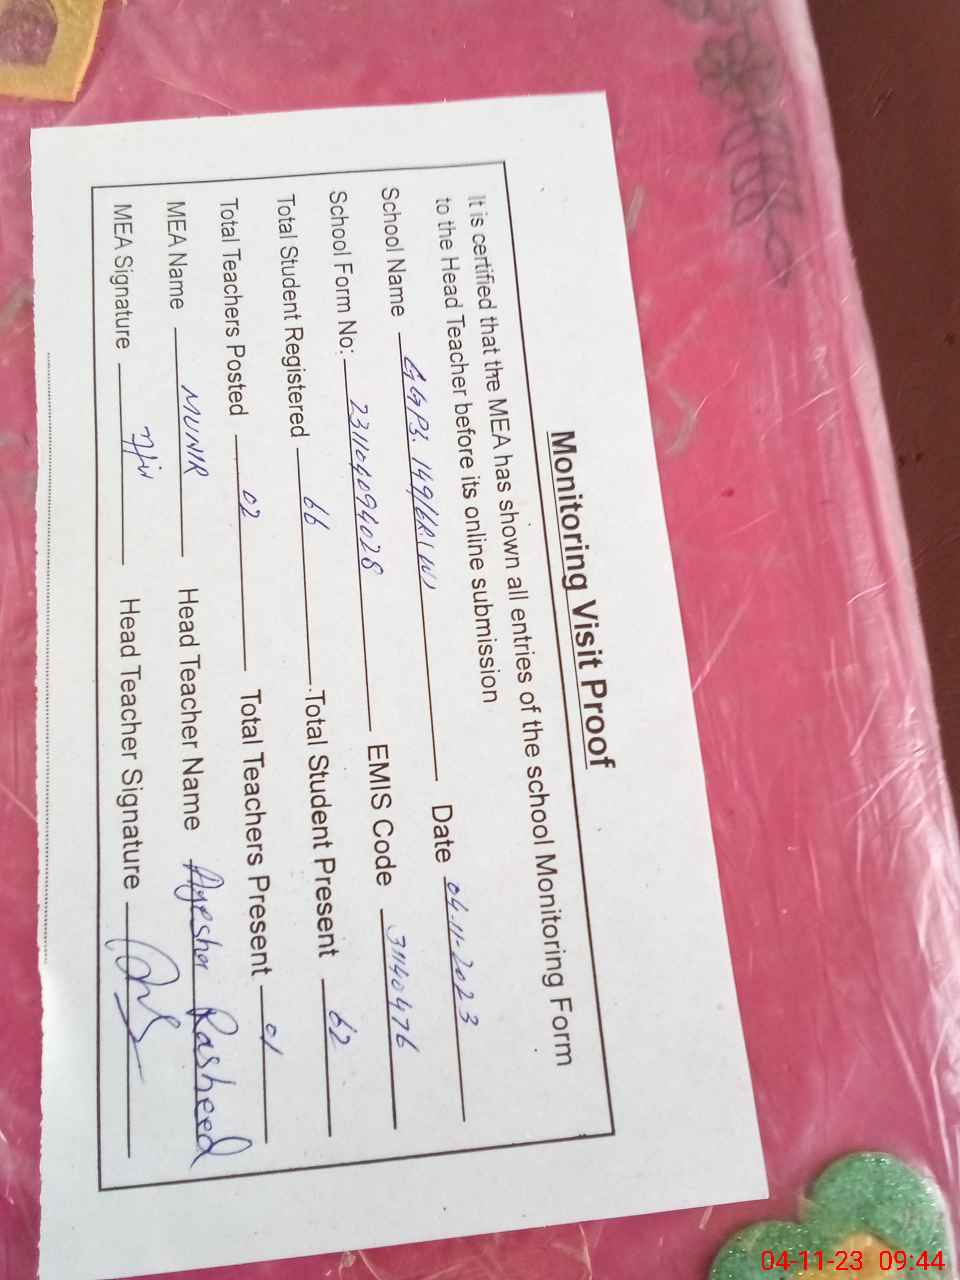 Monitoring Visit Proof
It is certified that the MEA has shown all entries of the school Monitoring Form
to the Head Teacher before its online submission
School Name GGPS. 149/6R(W) Date 04-11-2023
School Form No: 231104094028 EMIS Code 31140476
Total Student Registered 66 Total Student Present 62
Total Teachers Posted 02 Total Teachers Present 01
MEA Name MUNIR Head Teacher Name Ayesha Rasheed
MEA Signature Head Teacher Signature
04-11-23 09:44